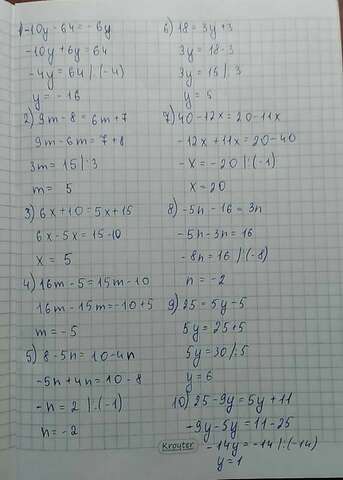 1) -10y - 64 = -6y
-10y + 6y = 64
-4y = 64 | :(-4)
y = -16
2) 9m - 8 = 6m + 7
9m - 6m = 7 + 8
3m = 15 | :3
m = 5
3) 6x + 10 = 5x + 15
6x - 5x = 15 - 10
x = 5
4) 16m - 5 = 15m - 10
16m - 15m = -10 + 5
m = -5
5) 8 - 5n = 10 - 4n
-5n + 4n = 10 - 8
-n = 2 | :(-1)
n = -2
6) 18 = 3y + 3
3y = 18 - 3
3y = 15 | :3
y = 5
7) 40 - 12x = 20 - 11x
-12x + 11x = 20 - 40
-x = -20 | :(-1)
x = 20
8) -5n - 16 = 3n
-5n - 3n = 16
-8n = 16 | :(-8)
n = -2
9) 25 = 5y - 5
5y = 25 + 5
5y = 30 | :5
y = 6
10) 25 - 9y = 5y + 11
-9y - 5y = 11 - 25
-14y = -14 | :(-14)
y = 1
Kroyter